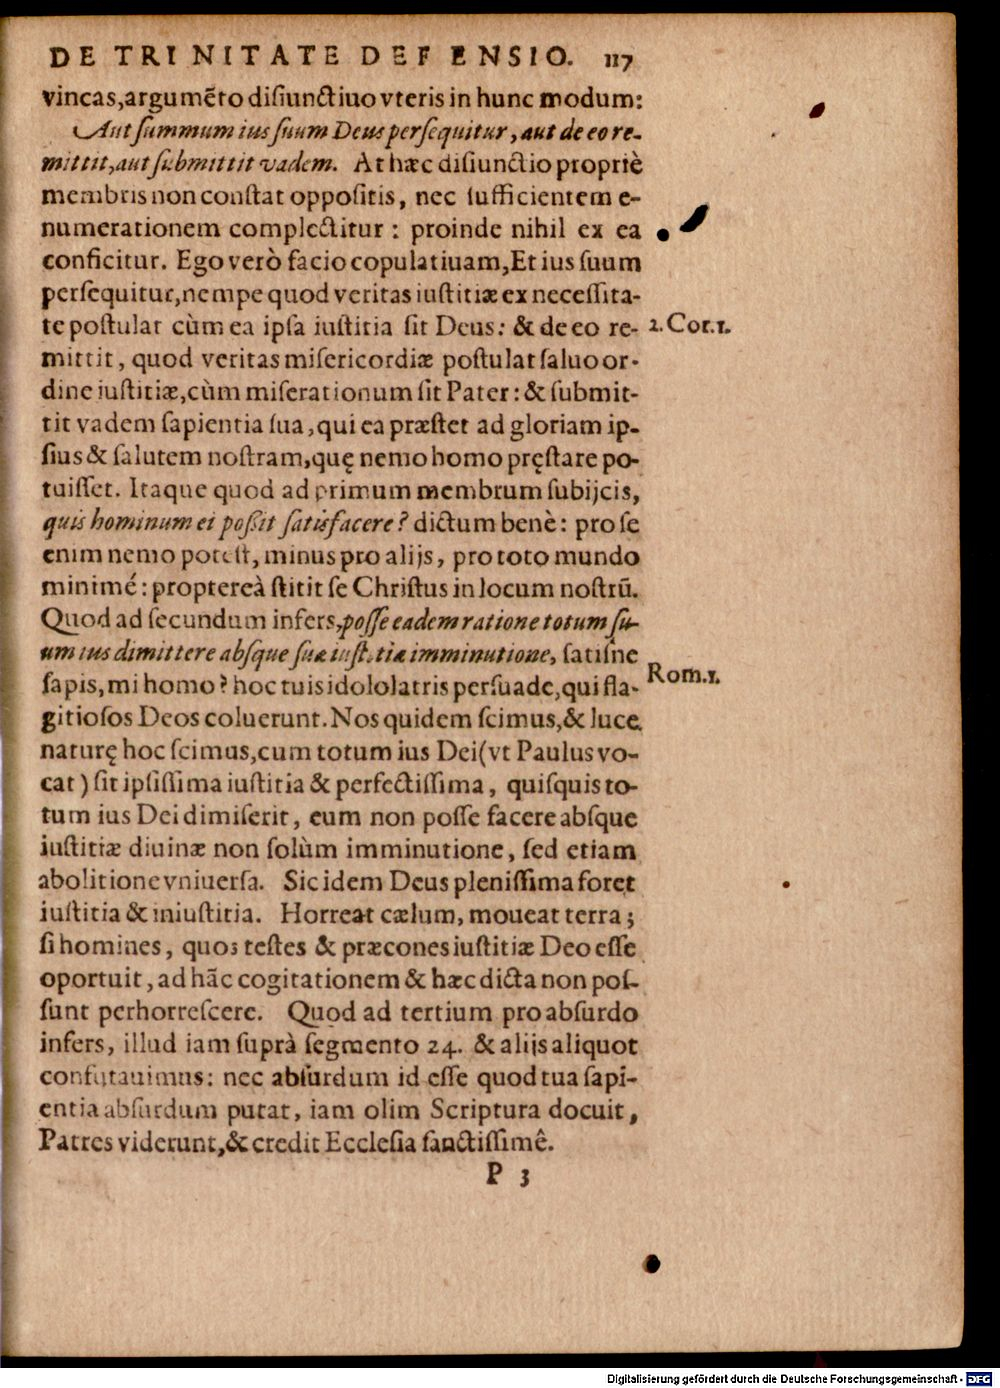 DE TRINITATE DEFENSIO. 117
vincas,argumẽto disiunctiuo vteris in hunc modum:
Aut summum ius suum Deus persequitur, aut de eo re-
mittit, aut submittit vadem. At hæc disiunctio propriè
membris non constat oppositis, nec sufficientem e-
numerationem complectitur : proinde nihil ex ea
conficitur. Ego verò facio copulatiuam, Et ius suum
persequitur, nempe quod veritas iustitiæ ex necessita-
te postulat cùm ea ipsa iustitia sit Deus: & de eo re-
2. Cor. 1.
mittit, quod veritas misericordiæ postulat saluo or-
dine iustitiæ, cùm miserationum sit Pater: & submit-
tit vadem sapientia sua, qui ea præstet ad gloriam ip-
sius & salutem nostram, quę nemo homo pręstare po-
tuisset. Itaque quod ad primum membrum subijcis,
quis hominum ei possit satisfacere? dictum benè: pro se
enim nemo potest, minus pro alijs, pro toto mundo
minimé: proptereà stitit se Christus in locum nostrũ.
Quod ad secundum infers, posse eadem ratione totum su-
um ius dimittere absque suæ iustitiæ imminutione, satisne
sapis, mi homo? hoc tuis idololatris persuade, qui fla-
Rom. 1.
gitiosos Deos coluerunt. Nos quidem scimus, & luce
naturę hoc scimus, cum totum ius Dei (vt Paulus vo-
cat) sit ipsissima iustitia & perfectissima, quisquis to-
tum ius Dei dimiserit, eum non posse facere absque
iustitiæ diuinæ non solùm imminutione, sed etiam
abolitione vniuersa. Sic idem Deus plenissima foret
iustitia & iniustitia. Horreat cælum, moueat terra;
si homines, quos testes & præcones iustitiæ Deo esse
oportuit, ad hãc cogitationem & hæc dicta non pos-
sunt perhorrescere. Quod ad tertium pro absurdo
infers, illud iam suprà segmento 24. & alijs aliquot
confutauimus: nec absurdum id esse quod tua sapi-
entia absurdum putat, iam olim Scriptura docuit,
Patres viderunt, & credit Ecclesia sanctissimê.
P 3
Digitalisierung gefördert durch die Deutsche Forschungsgemeinschaft - DFG